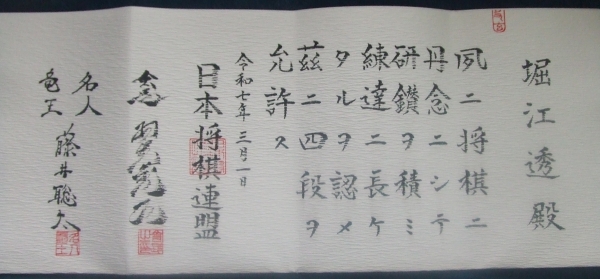 堀江透殿
夙ニ将棋ニ
丹念ニシテ
研鑽ヲ積ミ
練達ニ長ケ
タルヲ認メ
茲ニ四段ヲ
允許ス
令和七年三月一日
日本将棋連盟
会長
名人
竜王
藤井聡太